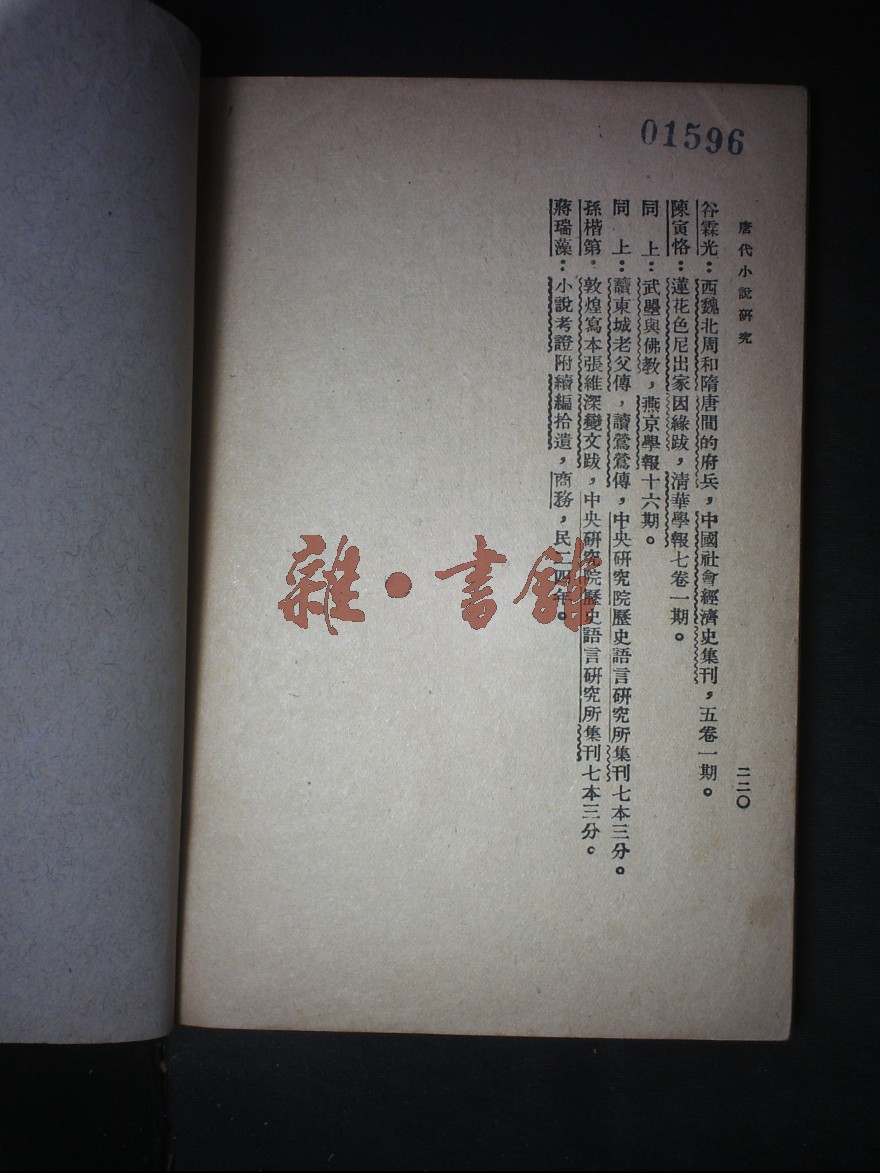 01596
唐代小說研究
二二〇
谷霽光：西魏北周和隋唐間的府兵，中國社會經濟史集刊，五卷一期。
陳寅恪：蓮花色尼出家因緣跋，清華學報七卷一期。
同　上：武曌與佛教，燕京學報十六期。
同　上：讀東城老父傳，讀鶯鶯傳，中央研究院歷史語言研究所集刊七本三分。
孫楷第：敦煌寫本張維深變文跋，中央研究院歷史語言研究所集刊七本三分。
蔣瑞藻：小說考證附續編拾遺，商務，民二四年。
雜·書館